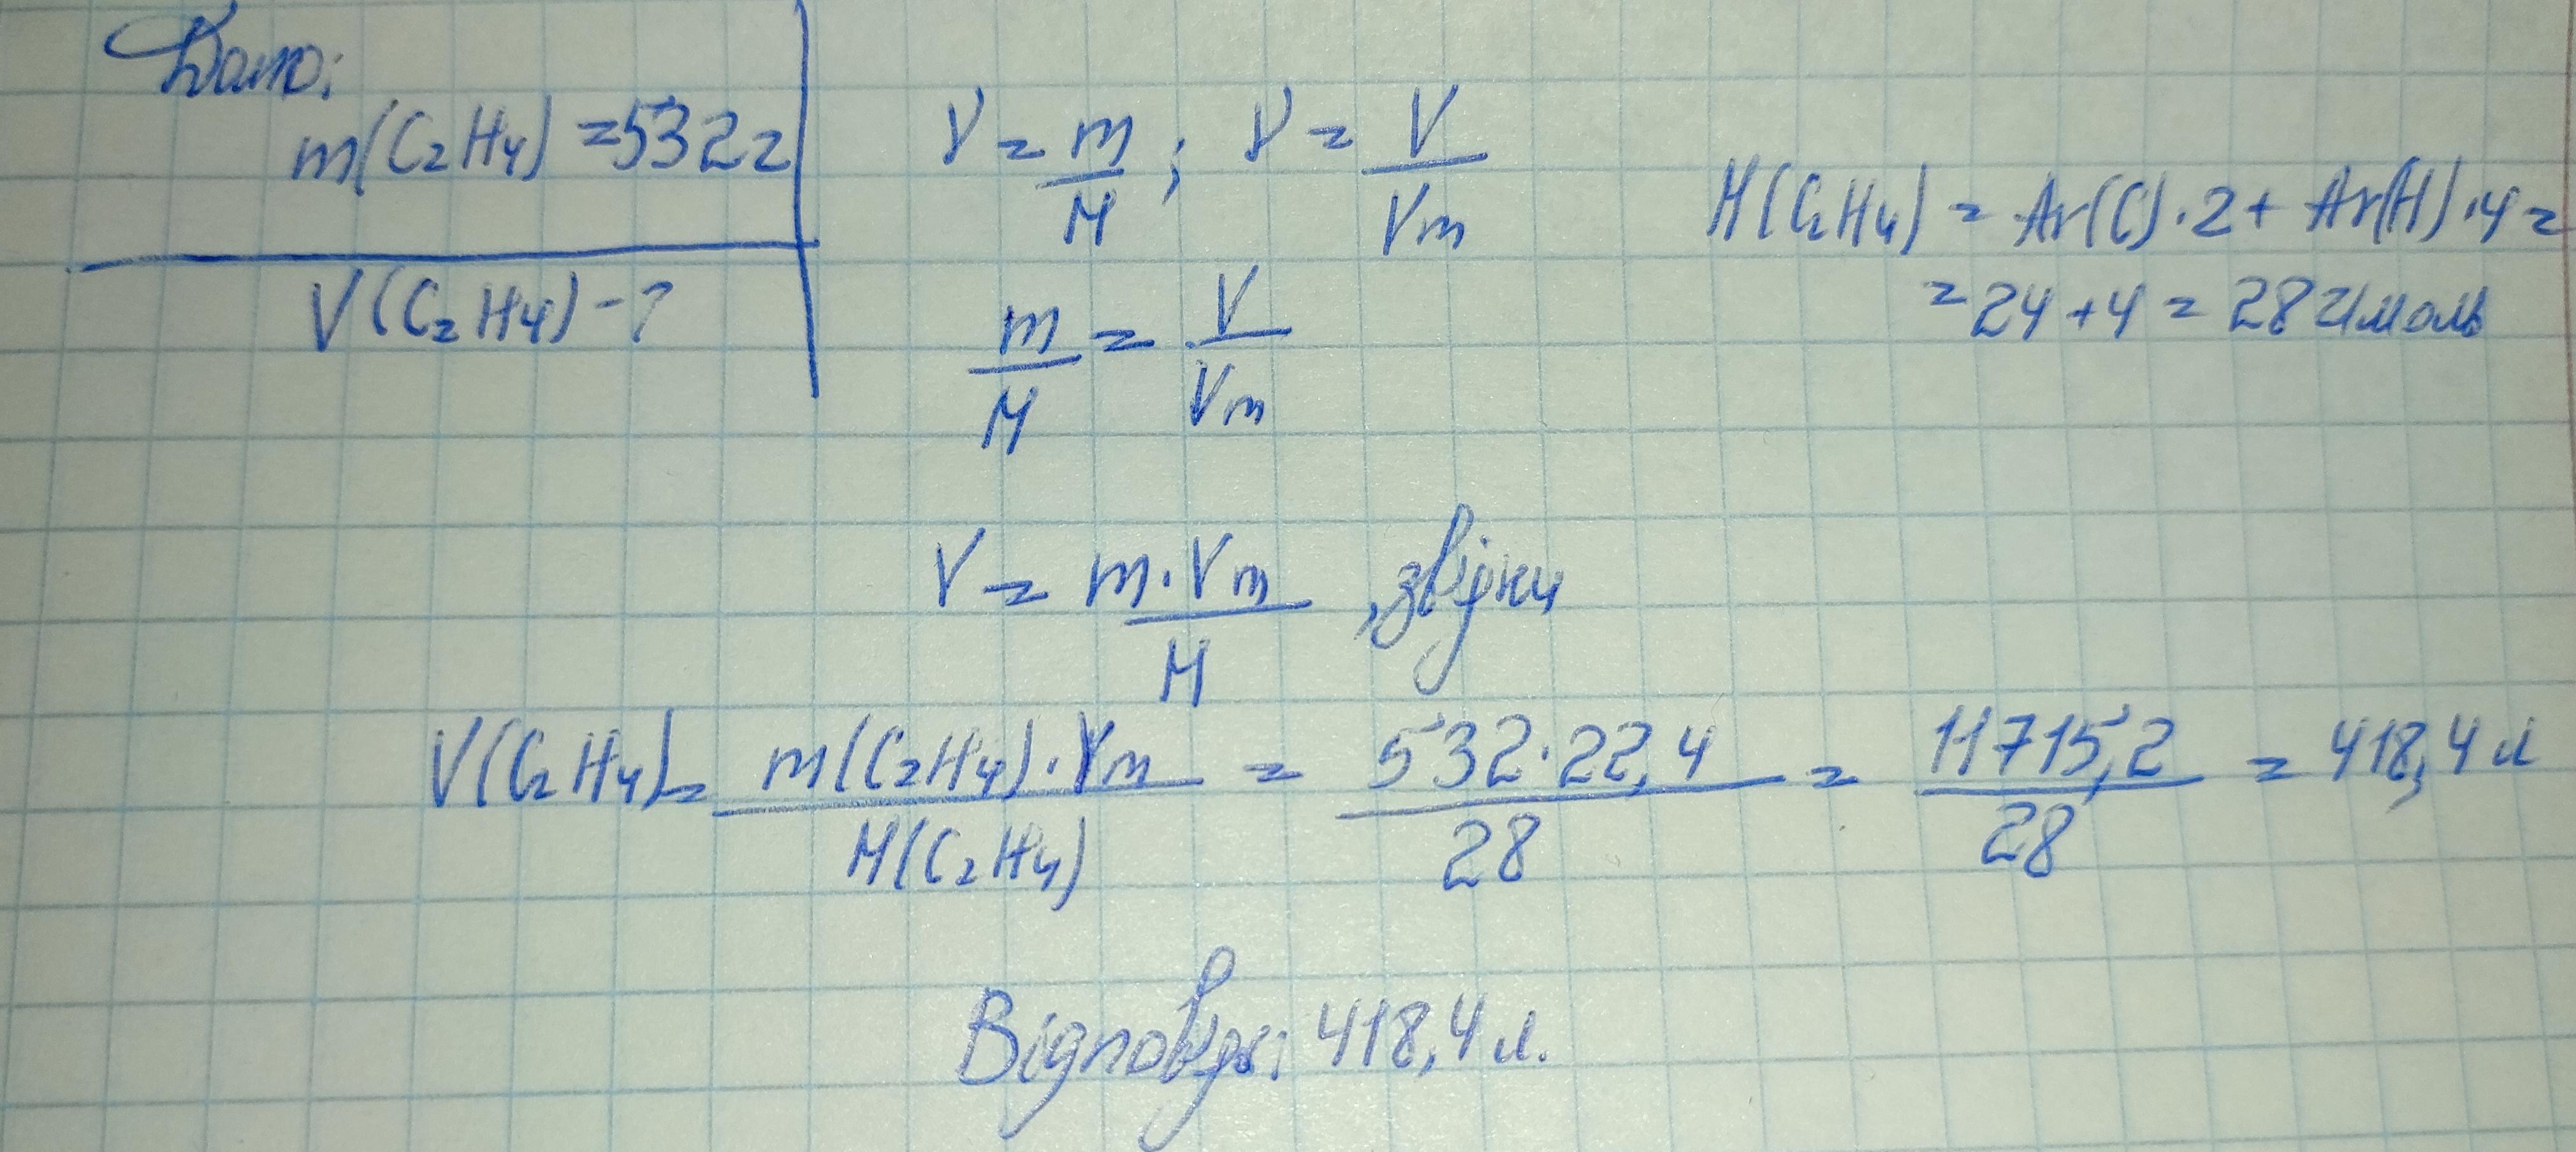 Дано:
m(C₂H₄) = 532 г
V(C₂H₄) - ?
ν = m/M ; ν = V/Vm
M(C₂H₄) = Ar(C)·2 + Ar(H)·4 =
= 24 + 4 = 28 г/моль
m/M = V/Vm
V = m·Vm/M , звідки
V(C₂H₄) = m(C₂H₄)·Vm/M(C₂H₄) = 532·22,4/28 = 11715,2/28 = 418,4 л
Відповідь: 418,4 л.